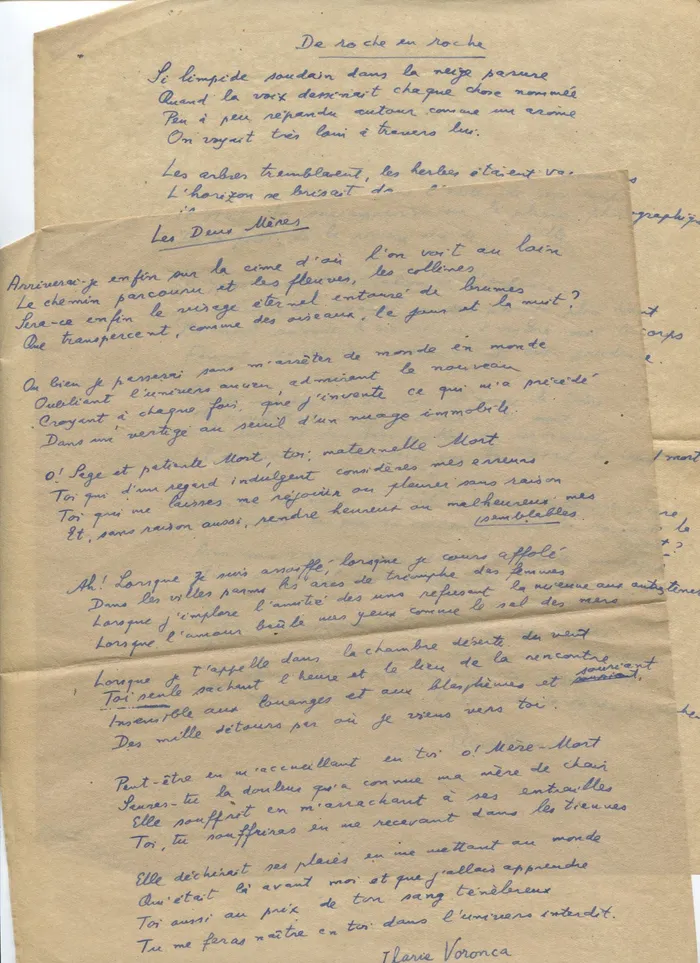 De roche en roche
Si limpide soudain dans la neige parure
Quand la voix dessinait chaque chose nommée
Peu à peu répandu autour comme un arôme
On voyait très loin à travers lui.
Les arbres tremblaient, les herbes étaient
L'horizon se brisait
Les Deux Mères
Arriverai-je enfin sur la cime d'où l'on voit au loin
Le chemin parcouru et les fleuves, les collines
Sera-ce enfin le visage éternel entouré de brumes
Que transpercent, comme des oiseaux, le jour et la nuit?
Ou bien je passerai sans m'arrêter de monde en monde
Oubliant l'univers ancien, admirant le nouveau
Croyant à chaque fois, que j'invente ce qui m'a précédé
Dans un vertige au seuil d'un nuage immobile.
O! Sage et patiente Mort, toi, maternelle Mort
Toi qui d'un regard indulgent considères mes erreurs
Toi qui me laisses me réjouir ou pleurer sans raison
Et, sans raison aussi, rendre heureux ou malheureux mes
semblables.
Ah! Lorsque je suis assoiffé, lorsque je cours affolé
Dans les villes parmi les arcs de triomphe des femmes
Lorsque j'implore l'amitié des uns refusant la mienne aux autres
Lorsque l'amour brûle mes yeux comme le sel des mers
Lorsque je t'appelle dans la chambre déserte du vent
Toi seule sachant l'heure et le lieu de la rencontre
Insensible aux louanges et aux blasphèmes et souriant
Des mille détours par où je viens vers toi.
Peut-être en m'accueillant en toi o! Mère-Mort
Sauras-tu la douleur qu'a connue ma mère de chair
Elle souffrit en m'arrachant à ses entrailles
Toi, tu souffriras en me recevant dans les tiennes
Elle déchirait ses plaies en me mettant au monde
Qui était là avant moi et que j'allais apprendre
Toi aussi au prix de ton sang ténébreux
Tu me feras naître en toi dans l'univers interdit.
Ilarie Voronca